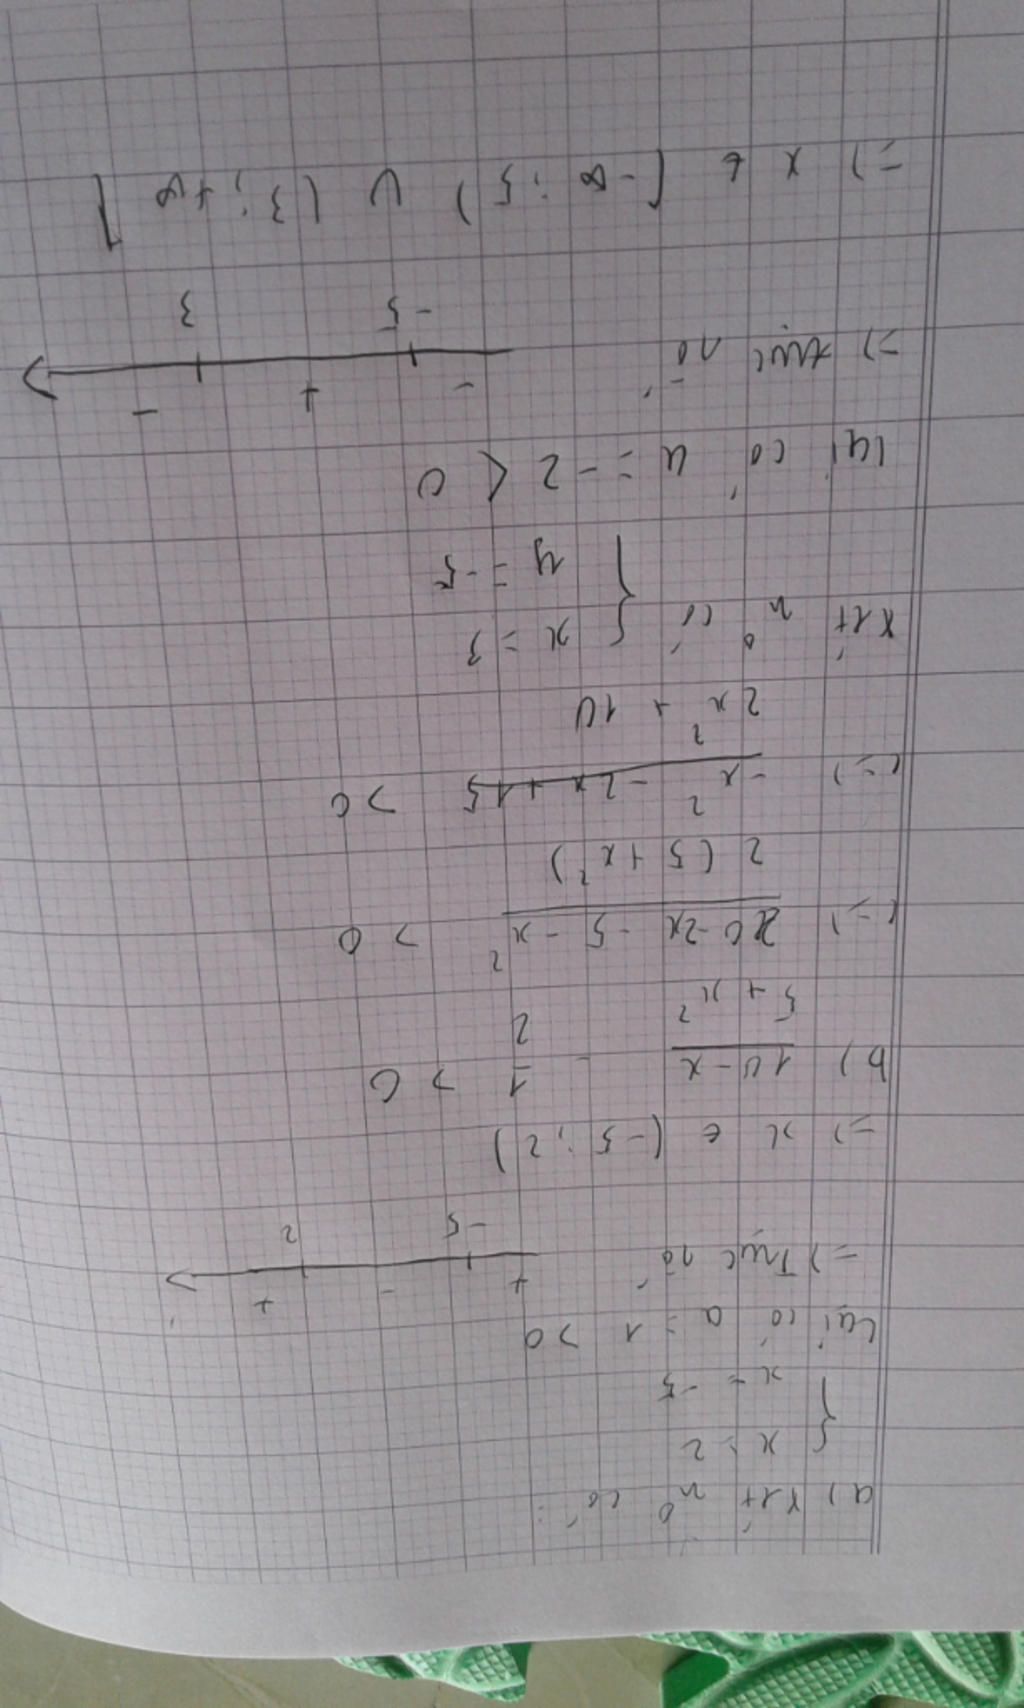 a) xét n° có :
{ x = 2
x = -5
Lại có a = 1 > 0
=) Trục số + - +
-5 2
=) x ∈ (-5 ; 2)
b) \frac{10 - x}{5 + x²} - \frac{1}{2} > 0
(=) \frac{20 - 2x - 5 - x²}{2(5 + x²)} > 0
(=) \frac{-x² - 2x + 15}{2x² + 10} > 0
xét n° có { x = 3
y = -5
Lại có a = -2 < 0
=) trục số - + -
-5 3
=) x ∈ [-∞ ; 5) ∪ (3 ; +∞]